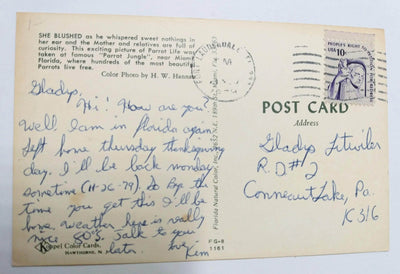 SHE BLUSHED as he whispered sweet nothings in
her ear and the Mother and relatives are full of
curiosity. This exciting picture of Parrot Life was
taken at famous "Parrot Jungle", near Miami,
Florida, where hundreds of the most beautiful
Parrots live free.
Color Photo by H. W. Hannau
Gladys,
Hi! How are you
well I am in florida again
left home thursday thanksgiving
day. I'll be back monday
sometime (11-26-79) So Bye the
time you get this I'll be
home. weather here is really
nice 80's. talk to you
later. love
Kim
Koppel Color Cards,
HAWTHORNE, N.
Florida Natural Color, Inc.
FG-9
1161
FORT LAUDERDALE, FL
PM
PEOPLE'S RIGHT TO
USA 10c
POST CARD
Address
Gladys Litwiler
R.D #2
Conneaut Lake, Pa.
16316